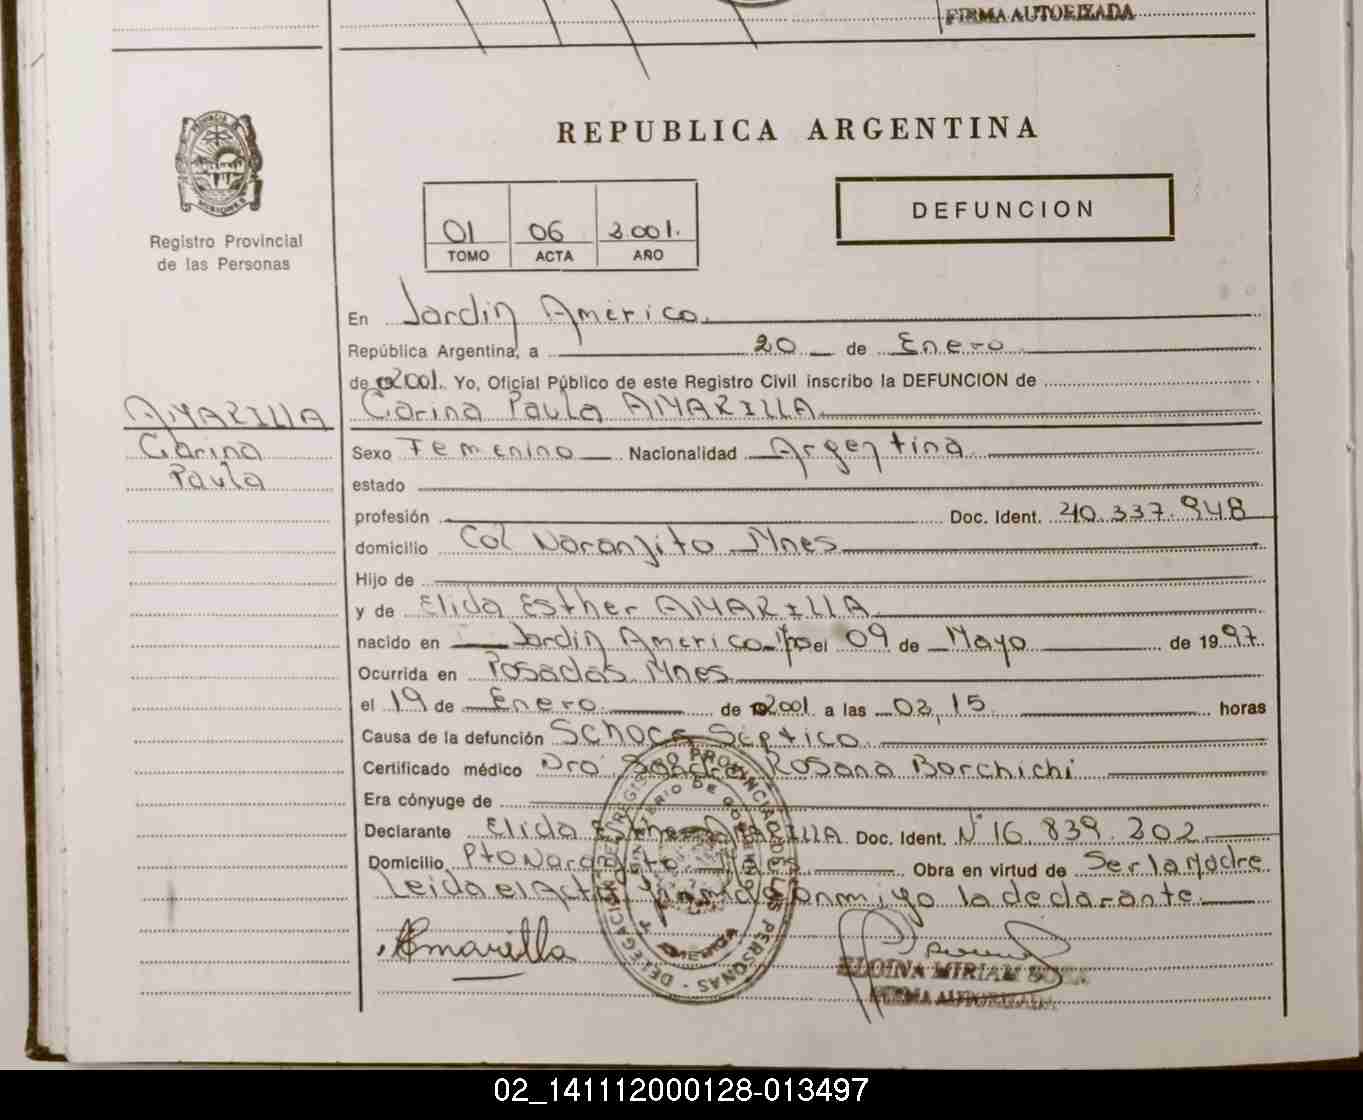 FIRMA AUTORIZADA
PROVINCIA DE
MISIONES
Registro Provincial
de las Personas
REPUBLICA ARGENTINA
01 06 2.001.
TOMO ACTA AÑO
DEFUNCION
En Jardin America.
República Argentina, a 20 de Enero
de 2001. Yo, Oficial Público de este Registro Civil inscribo la DEFUNCION de
Carina Paula AMARILLA
AMARILLA
Carina
Paula
Sexo Femenino Nacionalidad Argentina
estado
profesión Doc. Ident. 40.337.948
domicilio Col Naranjito Mnes
Hijo de
y de Elida Esther AMARILLA
nacido en Jardin America el 09 de Mayo de 1997.
Ocurrida en Posadas Mnes
el 19 de Enero de 2001 a las 02,15 horas
Causa de la defunción Schock Séptico
Certificado médico Dra Sandra Rosana Borchichi
Era cónyuge de
Declarante Elida Esther AMARILLA Doc. Ident. N° 16.839.202
Domicilio Pto Naranjito Obra en virtud de Ser la Madre
Leida el Acta firma conmigo la declarante
Amarilla
ELOINA MIRIAM
FIRMA AUTORIZADA
DELEGACION DEL REGISTRO PROVINCIAL DE LAS PERSONAS
MINISTERIO DE GOBIERNO
02_141112000128-013497